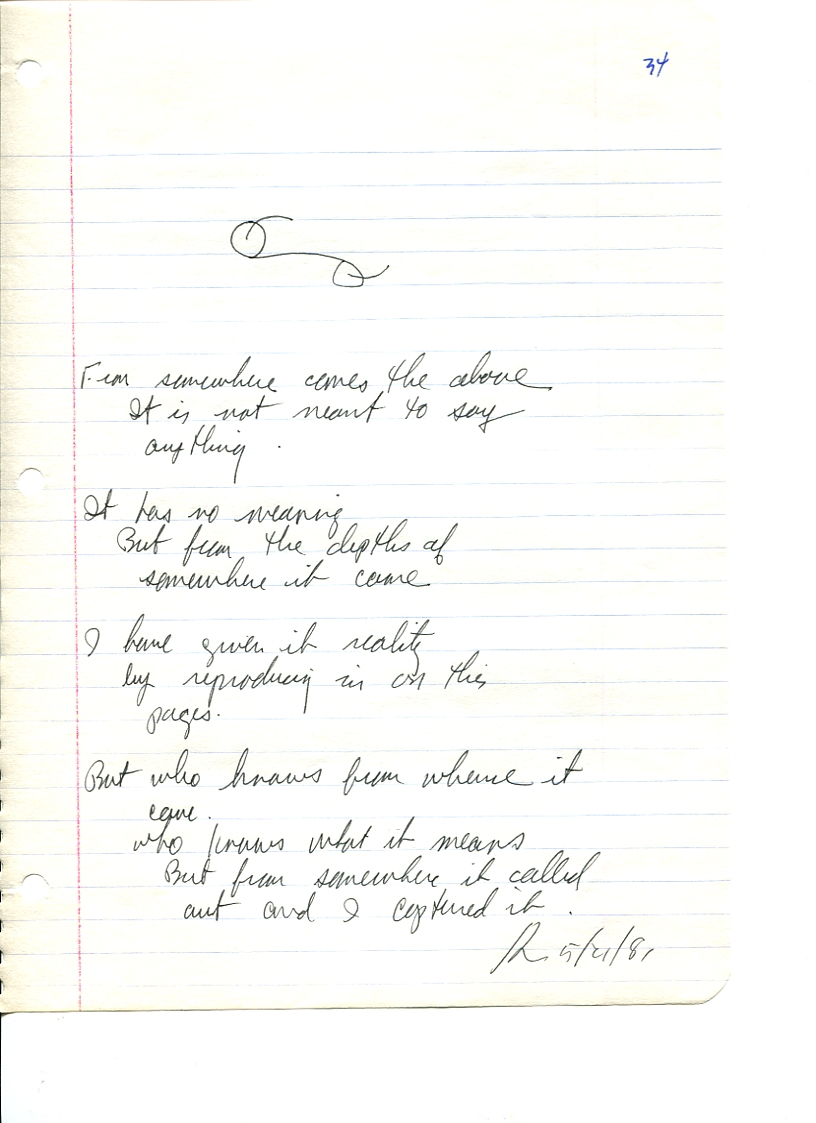 34
From somewhere comes the above
It is not meant to say
anything.
It has no meaning
But from the depths of
somewhere it came
I have given it reality
by reproducing in on this
pages.
But who knows from whence it
came.
who knows what it means
But from somewhere it called
out and I captured it.